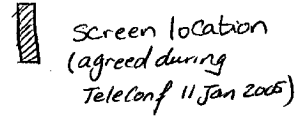 screen location
(agreed during
TeleConf 11 Jan 2005)